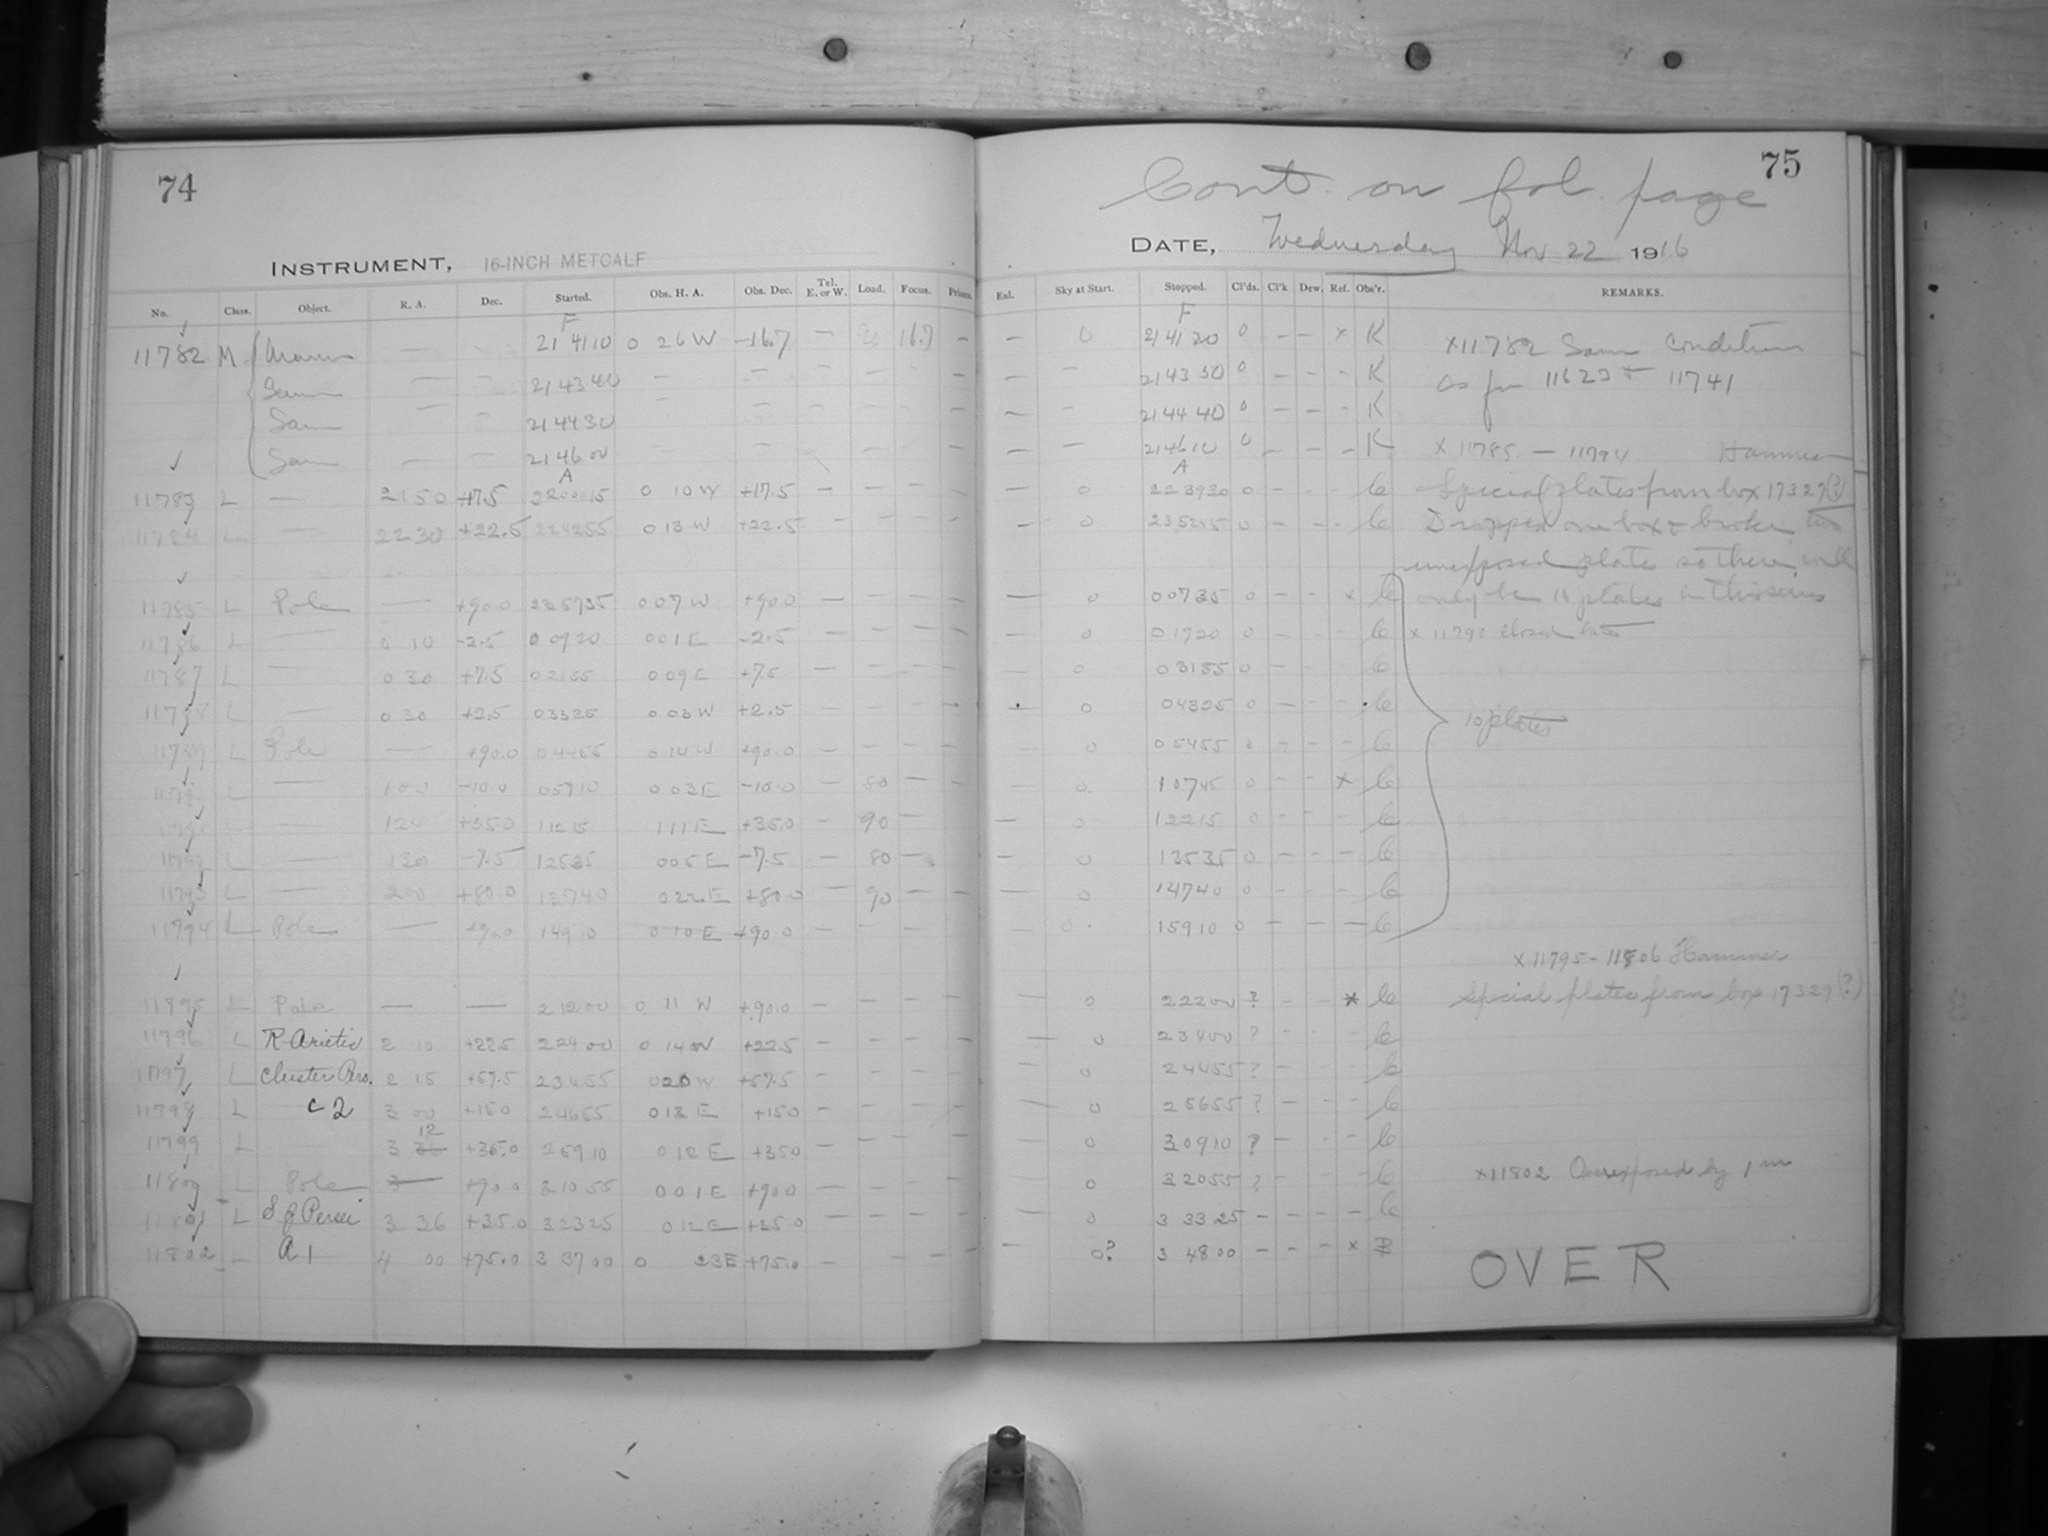 74
INSTRUMENT, 16-INCH METCALF
No. Class. Object. R. A. Dec. Started. Obs. H. A. Obs. Dec. Tel. E. or W. Load. Focus.
F
11782 M — — 21 41 10 0 26 W —16.7 — 16.7 —
— — 21 43 40 — —
— — 21 44 30 — —
— — 21 46 00
A
11783 L — 21 50 +17.5 22 00 15 0 10 W +17.5 — — — —
11784 L — 22 30 +22.5 22 42 55 0 13 W +22.5 — — — —
11785 L Pole — +90.0 23 57 35 0 07 W +90.0 — — — —
11786 L — 0 10 -2.5 0 09 20 0 01 E -2.5 — — — —
11787 L — 0 30 +7.5 0 21 55 0 09 E +7.5 — — — —
11788 L — 0 30 +2.5 0 33 25 0 03 W +2.5 — — — —
11789 L Pole — +90.0 0 44 55 0 14 W +90.0 — — — —
L — 1 00 -10.0 0 59 10 0 03 E -10.0 — 80 — —
— 1 24 +35.0 1 12 15 1 11 E +35.0 — 90 —
L — 1 30 -7.5 1 25 35 0 05 E -7.5 — 80 —
11793 L — 2 00 +80.0 1 37 40 0 22 E +80.0 — 90 — —
11794 L Pole — +90.0 1 49 10 0 10 E +90.0 — — — —
L Pole — — 2 12 00 0 11 W +90.0 — — — —
11796 L R Arietis 2 10 +22.5 2 24 00 0 14 W +22.5 — — — —
11797 L Cluster Pers. 2 15 +57.5 2 34 55 0 20 W +57.5 — — — —
11798 L C 2 3 00 +15.0 2 46 55 0 13 E +15.0 — — — —
11799 L 3 12 +35.0 2 59 10 0 12 E +35.0 — — — —
11800 L Pole — +90.0 3 10 55 0 01 E +90.0 — — — —
11801 L Persei 3 36 +35.0 3 23 25 0 12 E +35.0 — — — —
11802 L A 1 4 00 +75.0 3 37 00 0 23 E +75.0 — — — —
75
Cont. on fol. page
DATE, Wednesday Nov 22 1916
Enl. Sky at Start. Stopped. Cl'ds. Cl'k Dew. Ref. Obs'r. REMARKS.
F
— 0 21 41 20 0 — — x K x 11782 Same Condition
— — 21 43 50 0 — — - K as for 11741
— — 21 44 40 0 — — - K
— 21 46 10 0 — — - K x 11785 — 11794 Hammer
A
— 0 22 39 30 0 — - - C Special plates from box 17329 (?)
— 0 23 52 45 0 — - - C Dropped one box & broke two
unexposed plates so there will
— 0 0 07 35 0 — - x C only be 10 plates in this series
— 0 0 19 20 0 — - - C x 11790 closed late
— 0 0 31 55 0 — - - C
0 0 43 25 0 — - C 10 plates
0 0 54 55 0 - - - C
— 0 1 07 45 0 - - x C
— 0 1 22 15 0 - - - C
— 0 1 35 35 0 — - - C
— 0 1 47 40 0 — - - C
— 0 1 59 10 0 — — — C
x 11795 - 11806 Hammer
— 0 2 22 00 ? - - x C Special plates from box 17329 (?)
— 0 2 34 00 ? - - - C
— 0 2 44 55 ? - - - C
— 0 2 56 55 ? — - - C
— 0 3 09 10 ? — - - C
— 0 3 20 55 ? - - - C x 11802 Overexposed by 1 m
— 0 3 33 25 — — — — C
— 0? 3 48 00 — — — x B
OVER